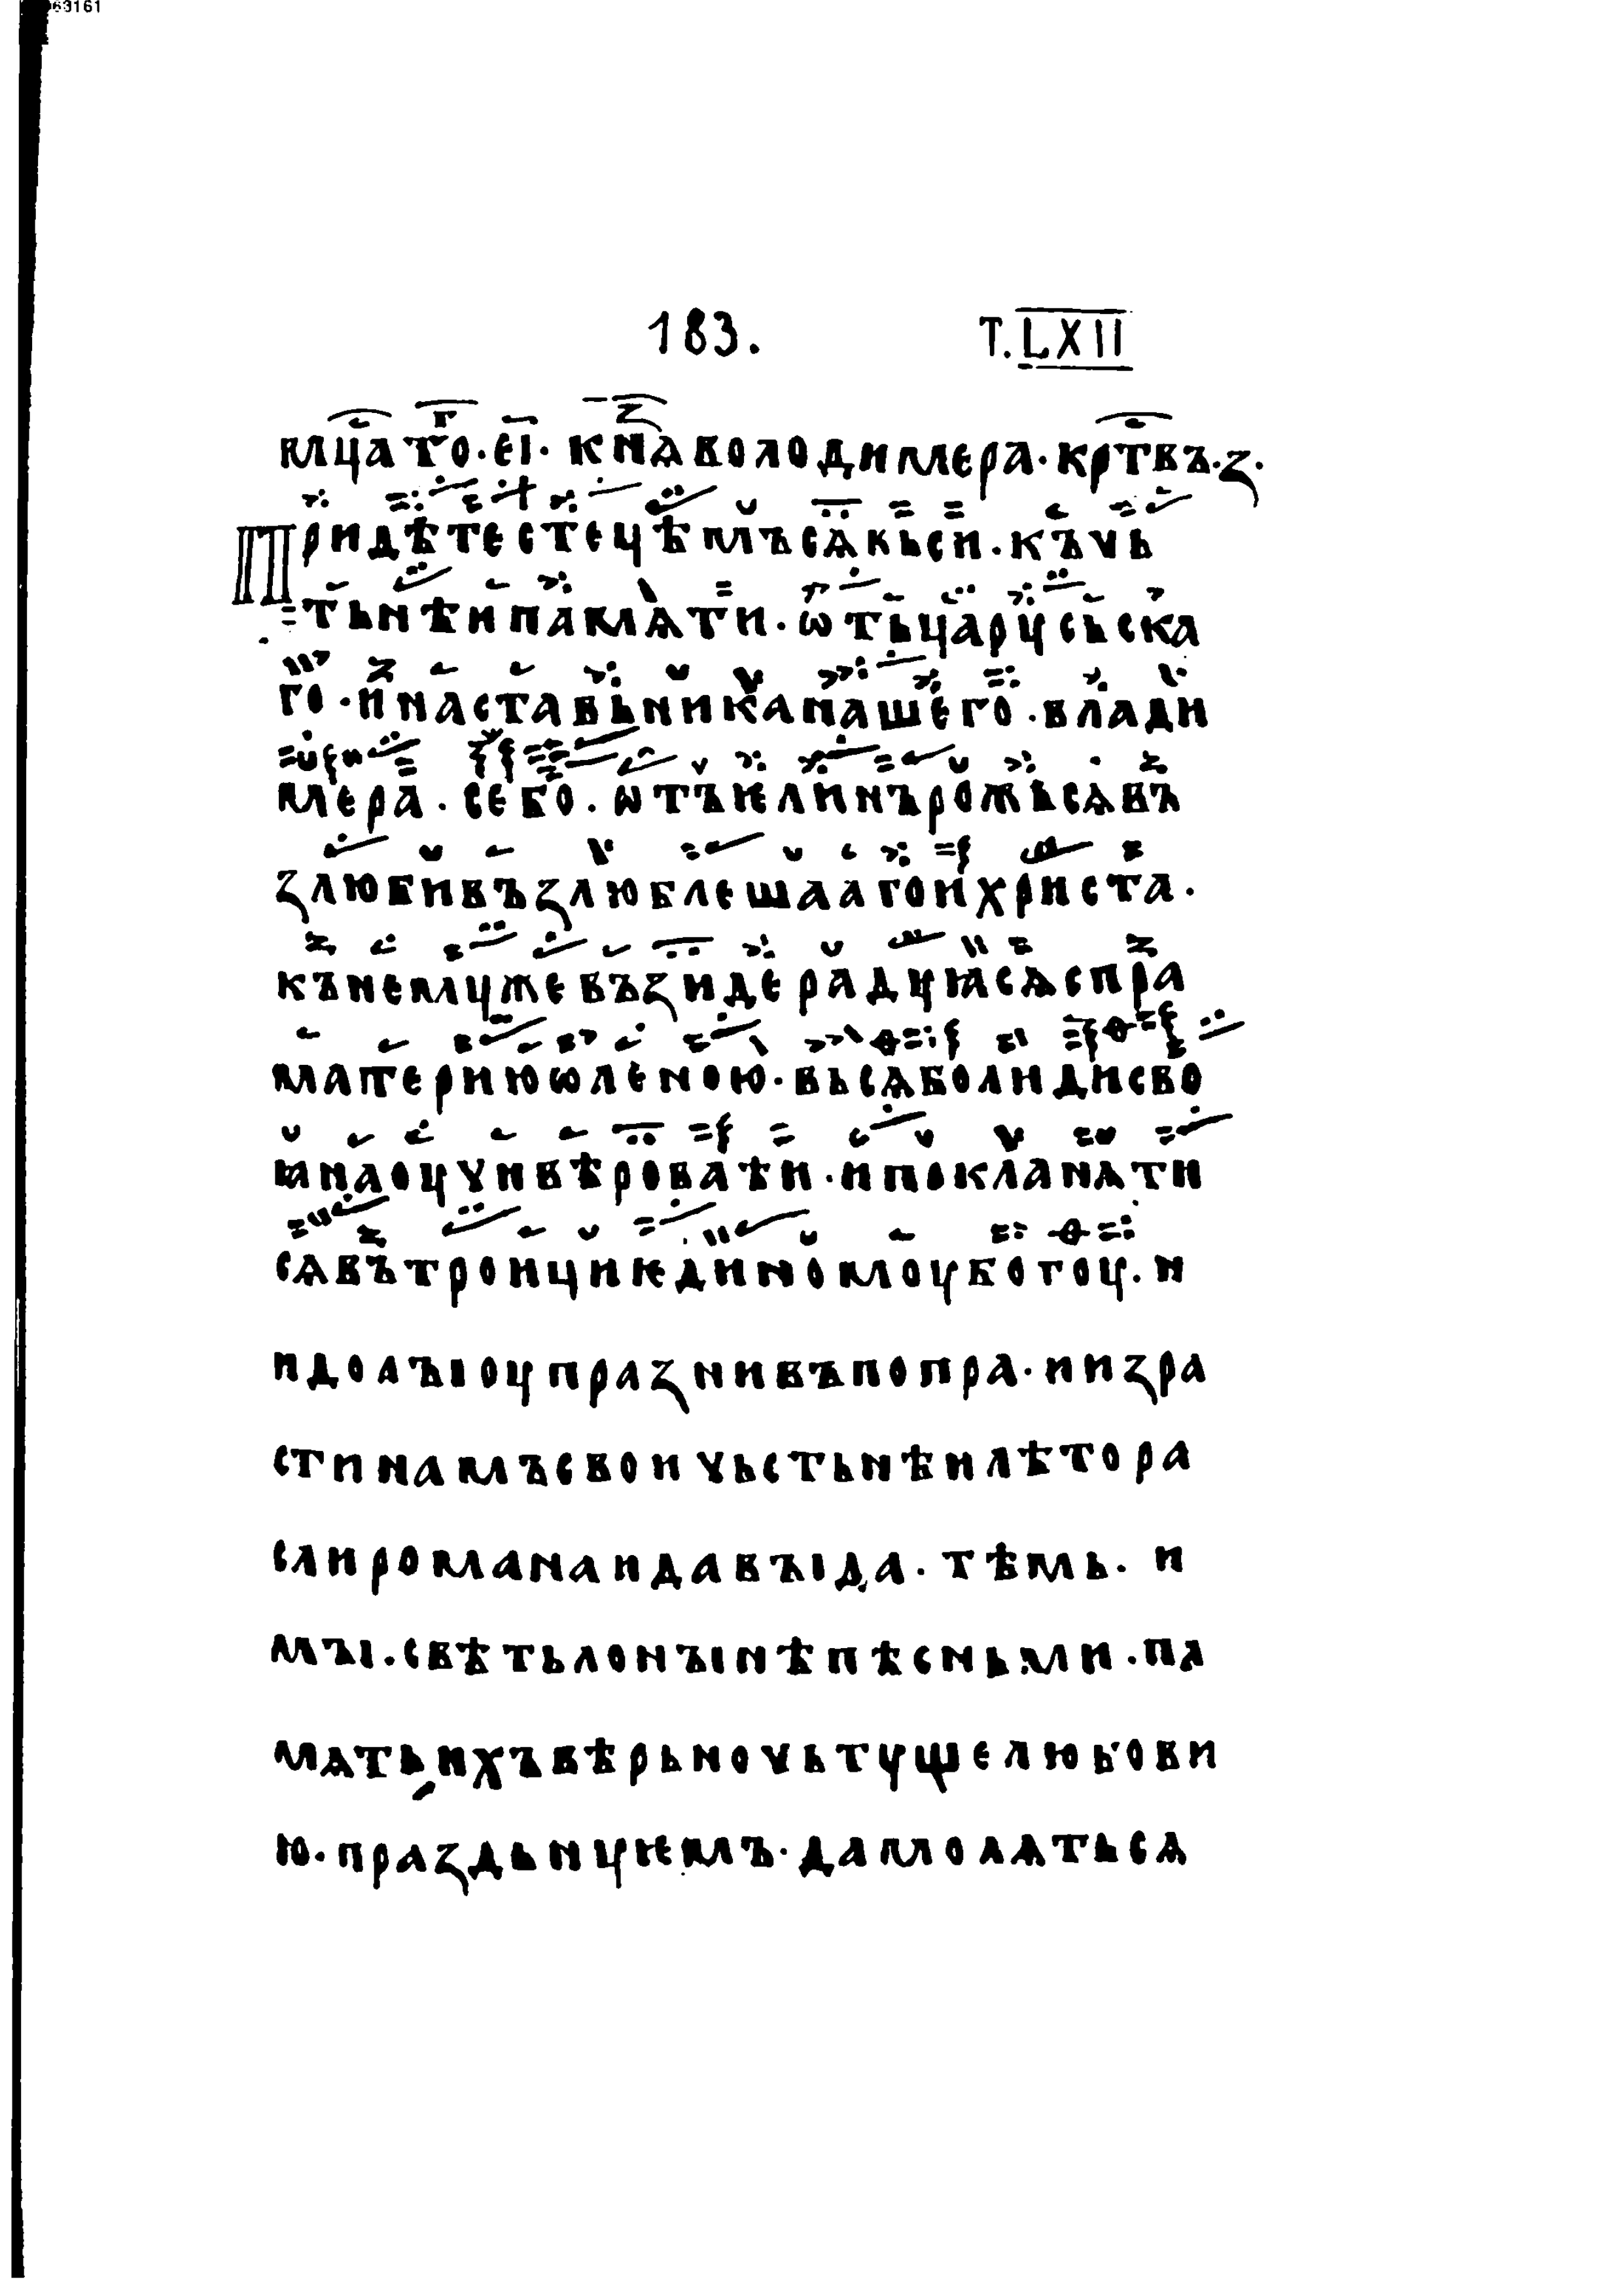 63161
183. T. LXII
мц҃а тог҃о · еі · кнѧ҃ꙁ володимера · крт҃въ · ꙁ ·
Придѣтестецѣмъсѧвьси · къчь
тьнѣипамѧти · ѿтьцарꙋсьска
го · инаставьниканашего · влади
мера · себо · ѡтъѥлинърожьсѧвъ
ꙁлюбивъꙁлюблешаагоихриста ·
кънемꙋжевъꙁидерадꙋꙗсѧспра
материюѡленою · вьсѧболидисво
ꙗнаоцꙋчивѣроватѣи · ипокланѧти
сѧвътроициѥдиномоꙋбогоꙋ · и
идолъіоꙋпраꙁнивъпопра · ииꙁра
стинамъсвоичьстьнѣилѣтора
слироманаидавъіда · тѣмь · и
мъі · свѣтьлонъінѣпѣсньми · па
мѧтьихъвѣрьночьтꙋщелюбови
ю · праꙁдьнꙋѥмъ · дамолѧтьсѧ